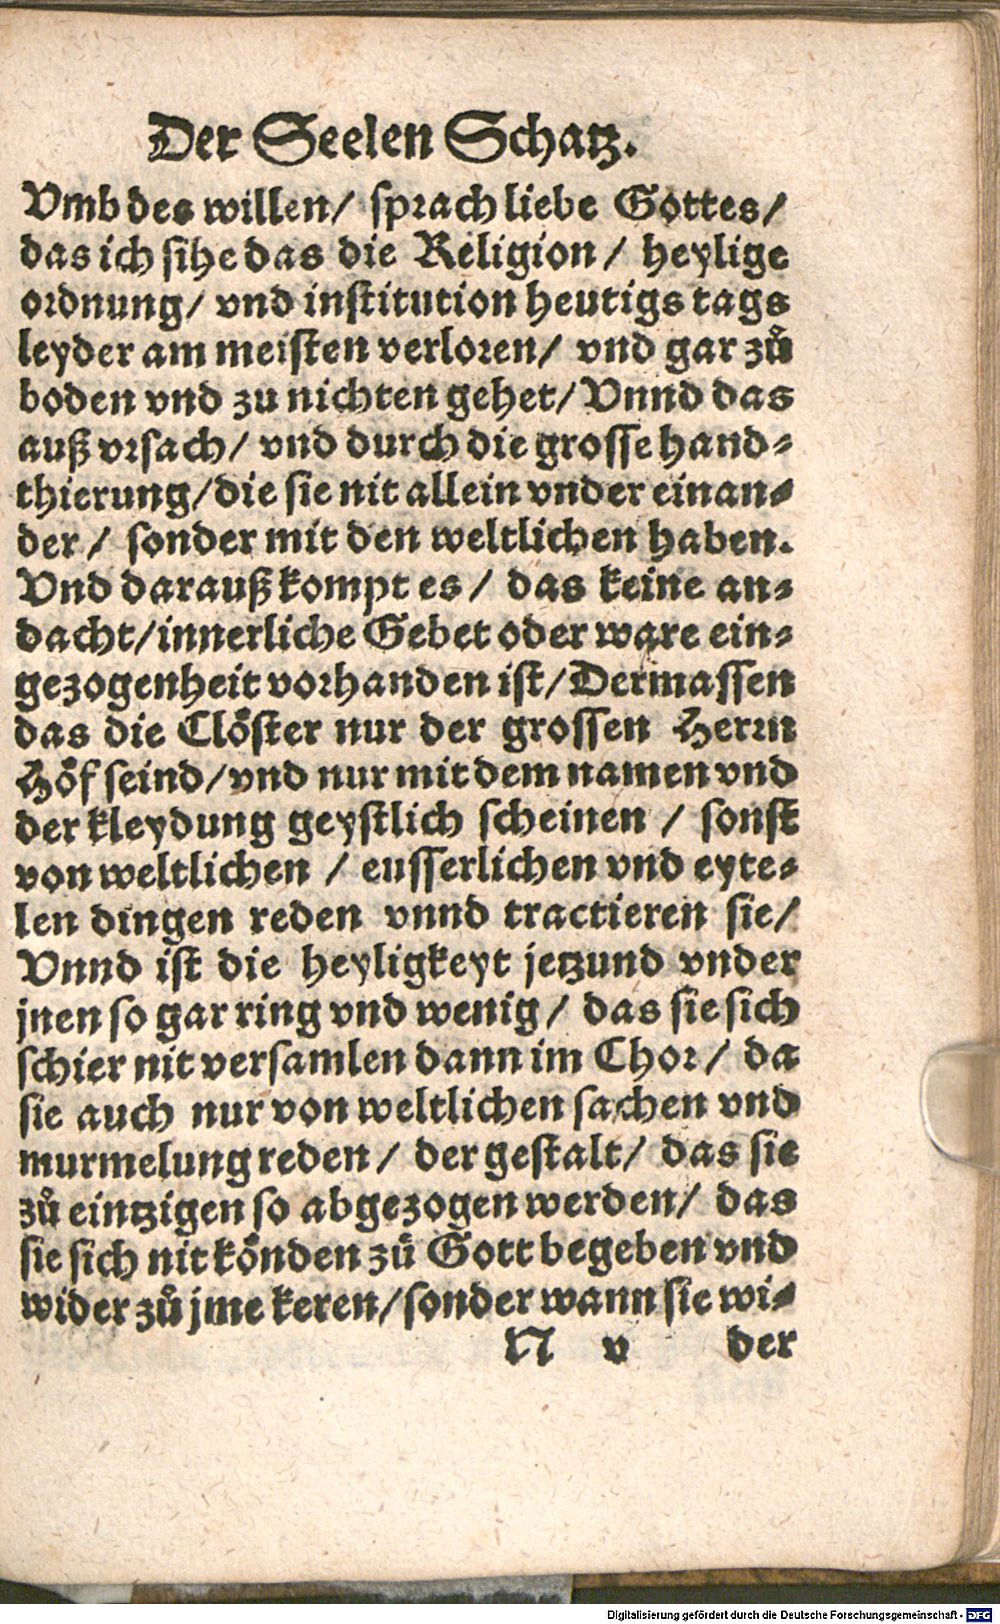 Der Seelen Schatz.
Vmb des willen/ sprach liebe Gottes/
das ich sihe das die Religion/ heylige
ordnung/ vnd institution heutigs tags
leyder am meisten verloren/ vnd gar zů
boden vnd zu nichten gehet/ Vnnd das
auß vrsach/ vnd durch die grosse hand-
thierung/ die sie nit allein vnder einan-
der/ sonder mit den weltlichen haben.
Vnd darauß kompt es/ das keine an-
dacht/ innerliche Gebet oder ware ein-
gezogenheit vorhanden ist/ Dermassen
das die Clöster nur der grossen Herrn
Höf seind/ vnd nur mit dem namen vnd
der kleydung geystlich scheinen / sonst
von weltlichen / eusserlichen vnd eyte-
len dingen reden vnnd tractieren sie/
Vnnd ist die heyligkeyt jetzund vnder
jnen so gar ring vnd wenig/ das sie sich
schier nit versamlen dann im Chor/ da
sie auch nur von weltlichen sachen vnd
murmelung reden/ der gestalt/ das sie
zů eintzigen so abgezogen werden/ das
sie sich nit könden zů Gott begeben vnd
wider zů jme keren/ sonder wann sie wi-
N v der
Digitalisierung gefördert durch die Deutsche Forschungsgemeinschaft - DFG